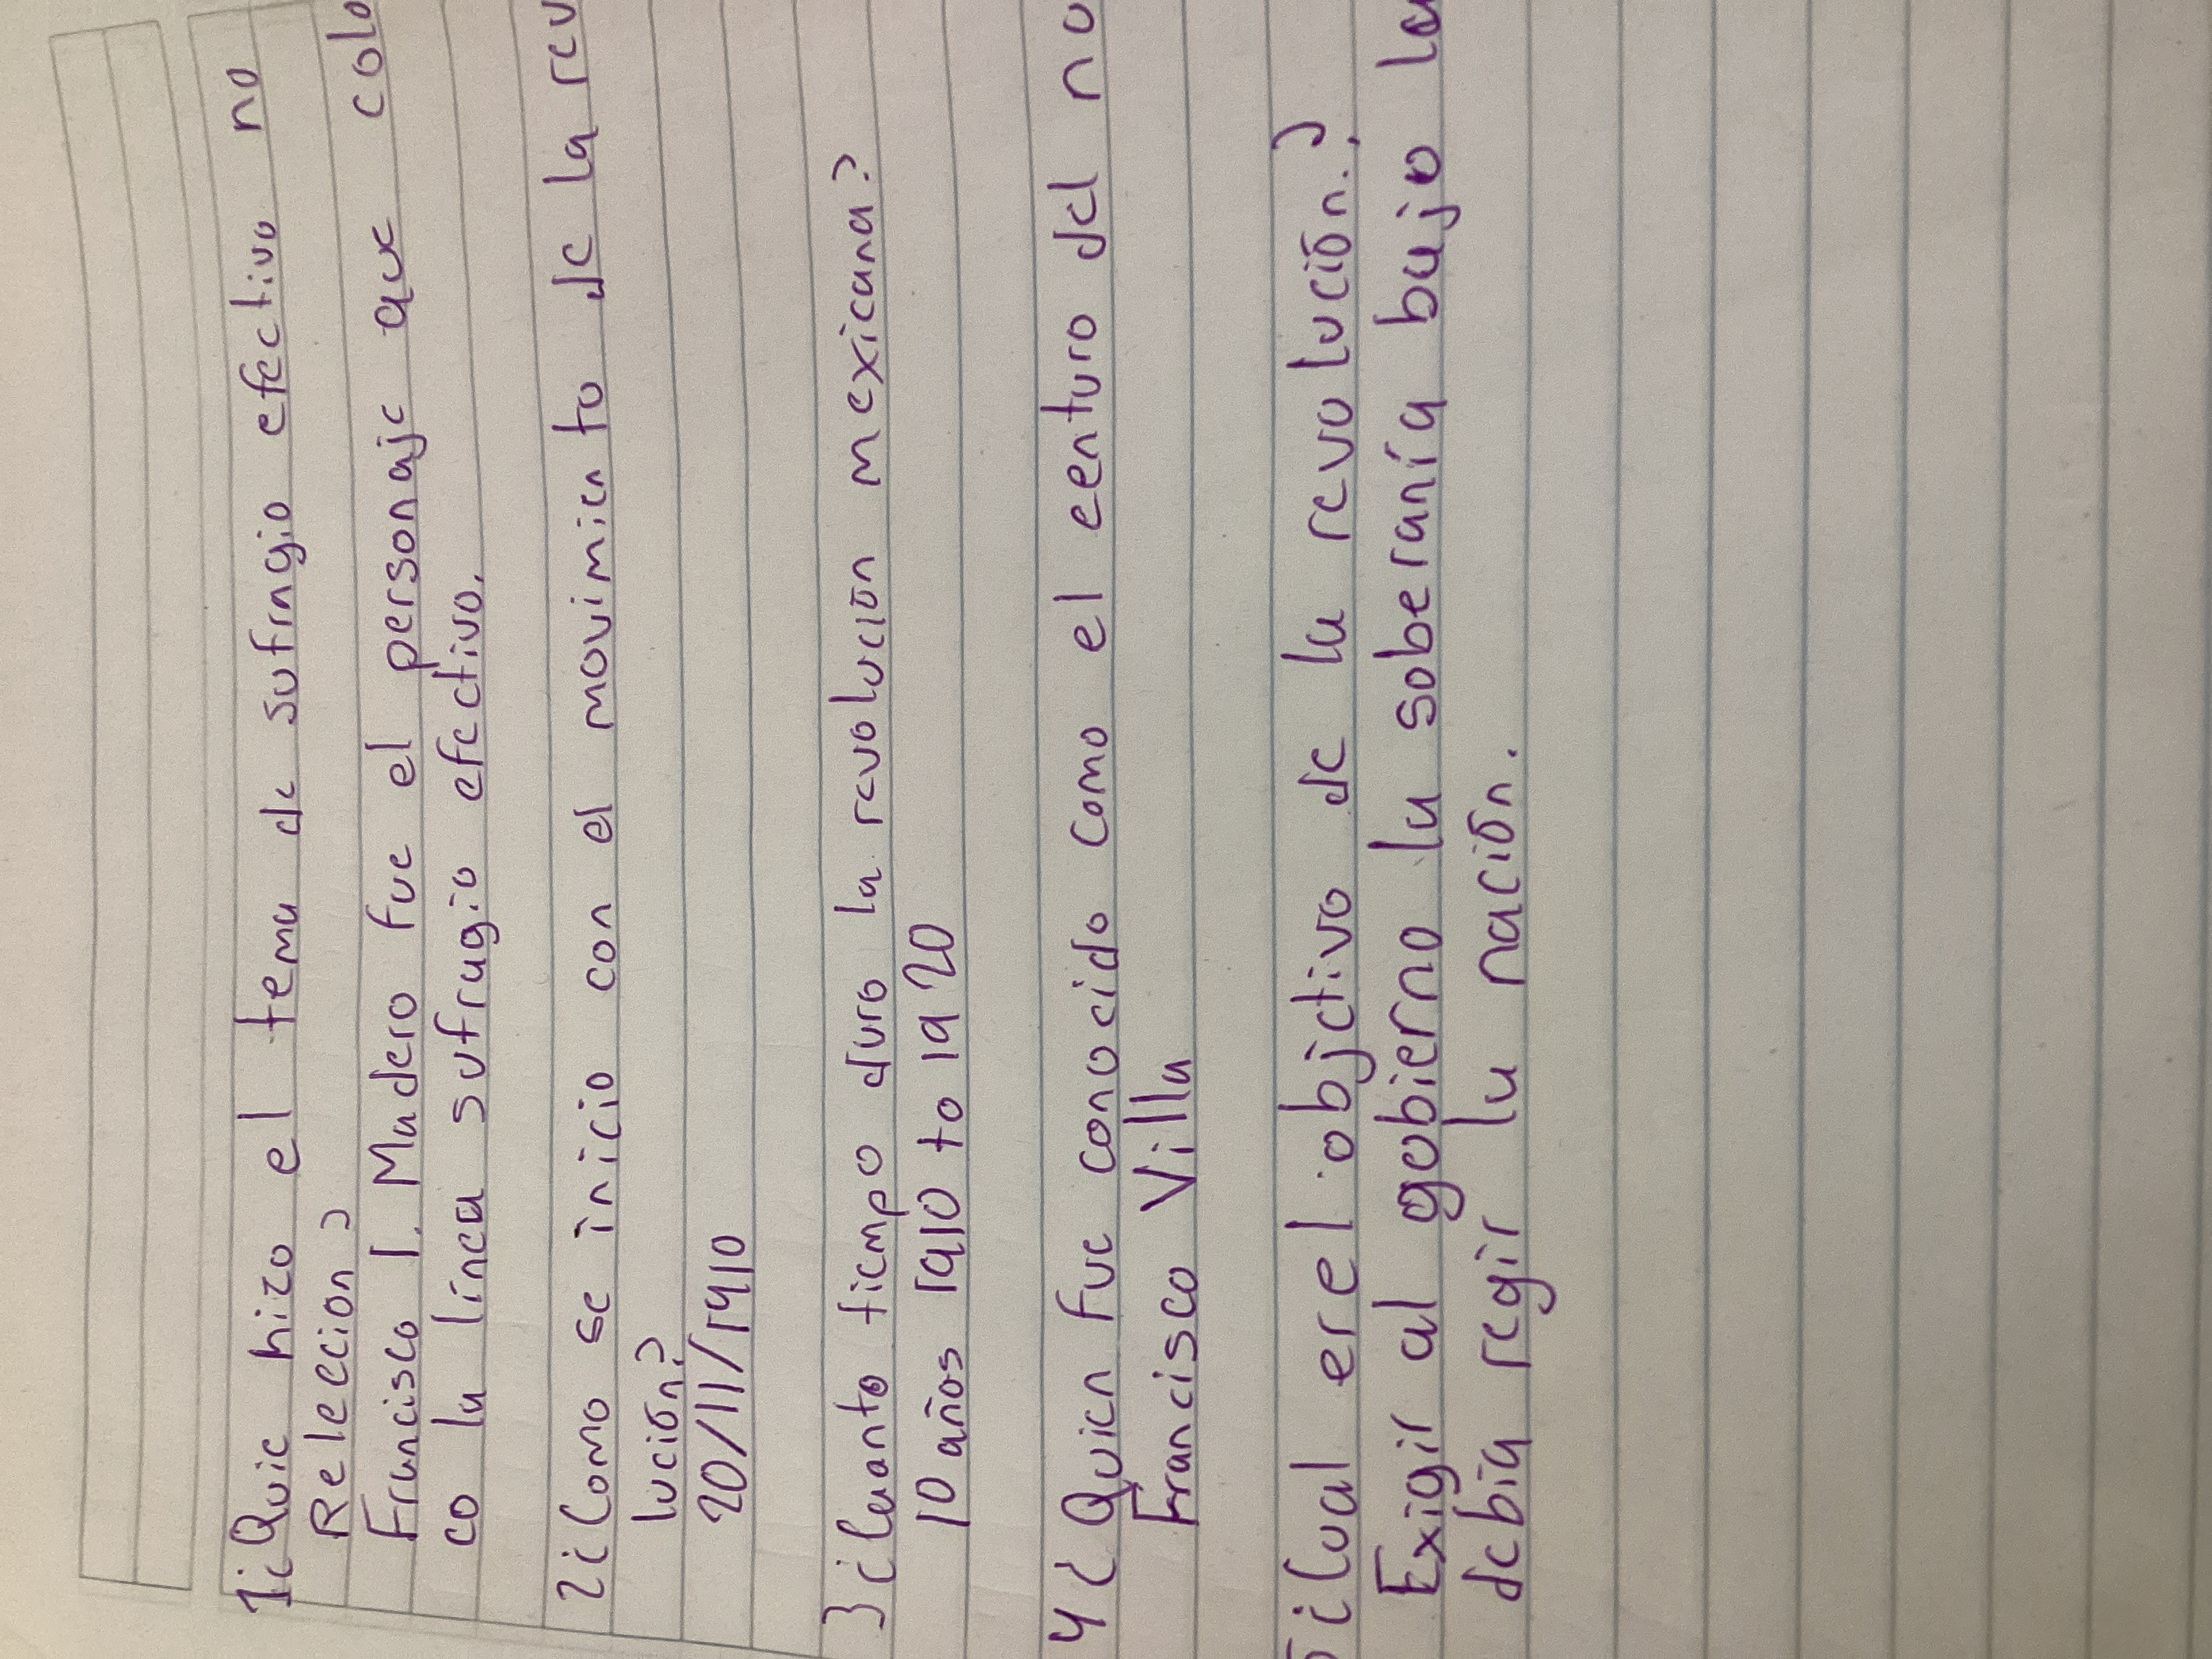 1¿Quie hizo el tema de sufragio efectivo no
Relección?
Francisco I. Madero fue el personaje que colo
co la línea sufragio efectivo.
2¿Como se inicio con el movimiento de la rev
lución?
20/11/1910
3¿Cuanto tiempo duro la revolución mexicana?
10 años 1910 to 1920
4¿Quien fue conocido como el centuro del no
Francisco Villa
5¿Cual ere l objetivo de la revolución?
Exigir al gobierno la soberanía bajo la
debia regir la nación.